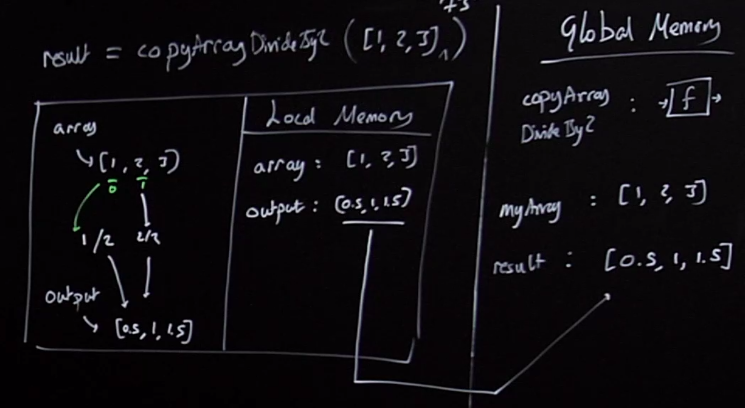 result = copyArrayDivideBy2 ([1, 2, 3])
array
[1, 2, 3]
0 1
1/2 2/2
output
[0.5, 1, 1.5]
Local Memory
array : [1, 2, 3]
output : [0.5, 1, 1.5]
Global Memory
copyArray : f
DivideBy2
myArray : [1, 2, 3]
result : [0.5, 1, 1.5]